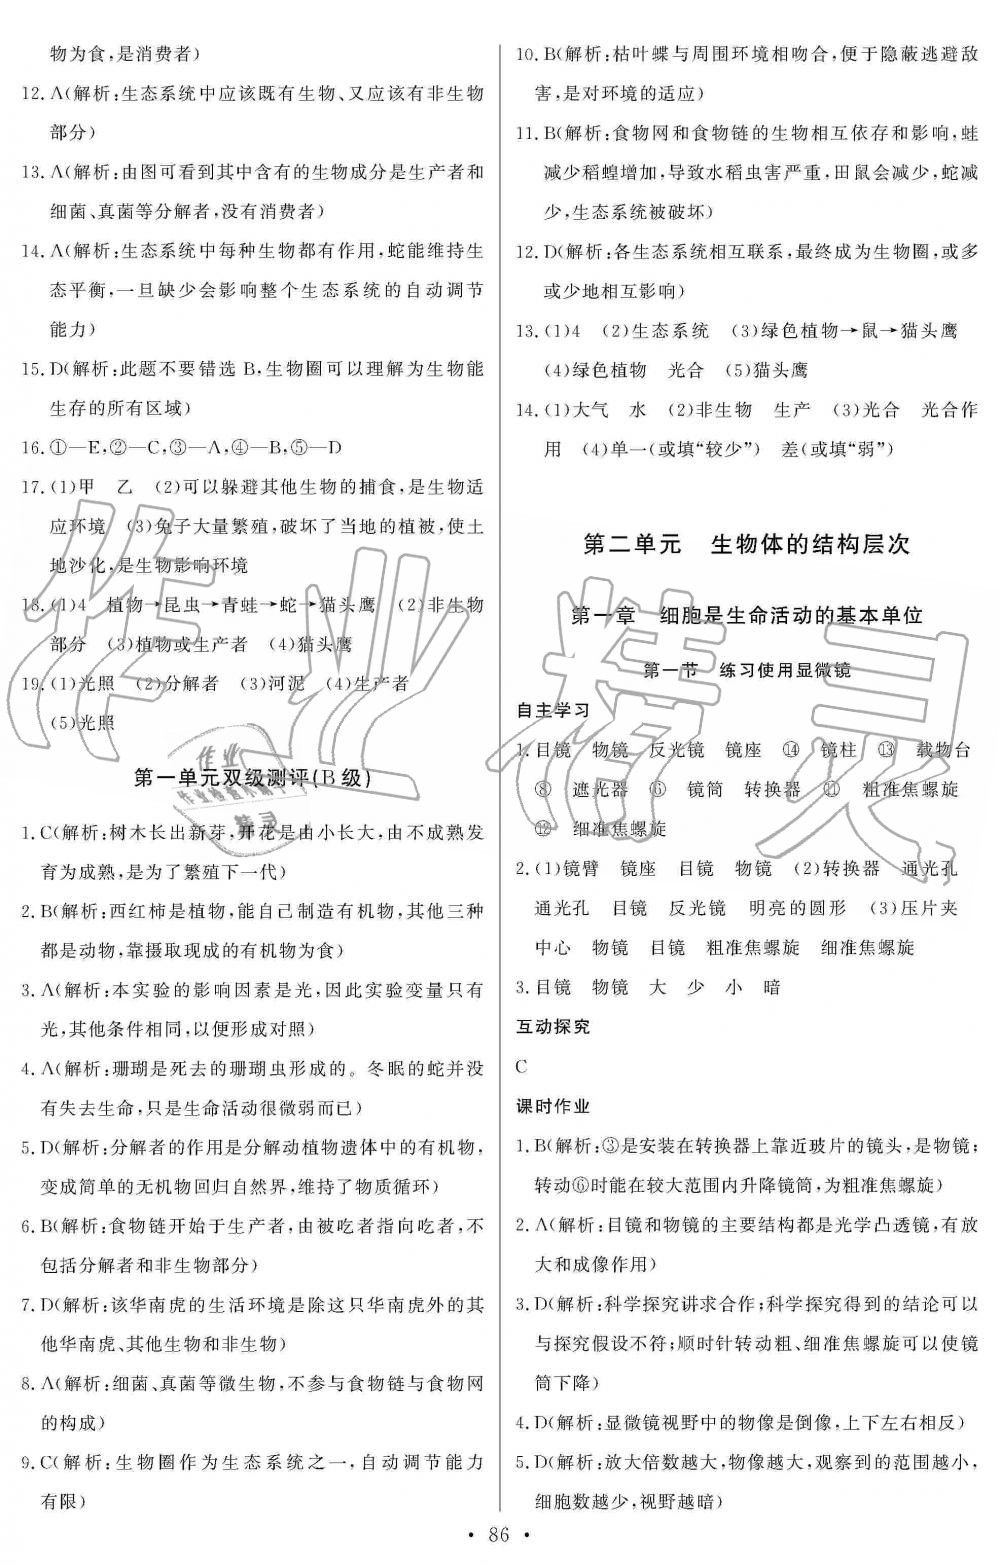 物为食,是消费者)
12. A(解析:生态系统中应该既有生物、又应该有非生物
部分)
13. A(解析:由图可看到其中含有的生物成分是生产者和
细菌、真菌等分解者,没有消费者)
14. A(解析:生态系统中每种生物都有作用,蛇能维持生
态平衡,一旦缺少会影响整个生态系统的自动调节
能力)
15. D(解析:此题不要错选 B,生物圈可以理解为生物能
生存的所有区域)
16. ①—E,②—C,③—A,④—B,⑤—D
17. (1)甲 乙 (2)可以躲避其他生物的捕食,是生物适
应环境 (3)兔子大量繁殖,破坏了当地的植被,使土
地沙化,是生物影响环境
18. (1)4 植物→昆虫→青蛙→蛇→猫头鹰 (2)非生物
部分 (3)植物或生产者 (4)猫头鹰
19. (1)光照 (2)分解者 (3)河泥 (4)生产者
(5)光照
第一单元双级测评(B 级)
1. C(解析:树木长出新芽,开花是由小长大,由不成熟发
育为成熟,是为了繁殖下一代)
2. B(解析:西红柿是植物,能自己制造有机物,其他三种
都是动物,靠摄取现成的有机物为食)
3. A(解析:本实验的影响因素是光,因此实验变量只有
光,其他条件相同,以便形成对照)
4. A(解析:珊瑚是死去的珊瑚虫形成的。冬眠的蛇并没
有失去生命,只是生命活动很微弱而已)
5. D(解析:分解者的作用是分解动植物遗体中的有机物,
变成简单的无机物回归自然界,维持了物质循环)
6. B(解析:食物链开始于生产者,由被吃者指向吃者,不
包括分解者和非生物部分)
7. D(解析:该华南虎的生活环境是除这只华南虎外的其
他华南虎、其他生物和非生物)
8. A(解析:细菌、真菌等微生物,不参与食物链与食物网
的构成)
9. C(解析:生物圈作为生态系统之一,自动调节能力
有限)
10. B(解析:枯叶蝶与周围环境相吻合,便于隐蔽逃避敌
害,是对环境的适应)
11. B(解析:食物网和食物链的生物相互依存和影响,蛙
减少稻蝗增加,导致水稻虫害严重,田鼠会减少,蛇减
少,生态系统被破坏)
12. D(解析:各生态系统相互联系,最终成为生物圈,或多
或少地相互影响)
13. (1)4 (2)生态系统 (3)绿色植物→鼠→猫头鹰
(4)绿色植物 光合 (5)猫头鹰
14. (1)大气 水 (2)非生物 生产 (3)光合 光合作
用 (4)单一(或填“较少”) 差(或填“弱”)
第二单元 生物体的结构层次
第一章 细胞是生命活动的基本单位
第一节 练习使用显微镜
自主学习
1. 目镜 物镜 反光镜 镜座 ⑭ 镜柱 ⑬ 载物台
⑧ 遮光器 ⑥ 镜筒 转换器 ⑪ 粗准焦螺旋
⑫ 细准焦螺旋
2. (1)镜臂 镜座 目镜 物镜 (2)转换器 通光孔
通光孔 目镜 反光镜 明亮的圆形 (3)压片夹
中心 物镜 目镜 粗准焦螺旋 细准焦螺旋
3. 目镜 物镜 大 少 小 暗
互动探究
C
课时作业
1. B(解析:③是安装在转换器上靠近玻片的镜头,是物镜;
转动⑥时能在较大范围内升降镜筒,为粗准焦螺旋)
2. A(解析:目镜和物镜的主要结构都是光学凸透镜,有放
大和成像作用)
3. D(解析:科学探究讲求合作;科学探究得到的结论可以
与探究假设不符;顺时针转动粗、细准焦螺旋可以使镜
筒下降)
4. D(解析:显微镜视野中的物像是倒像,上下左右相反)
5. D(解析:放大倍数越大,物像越大,观察到的范围越小,
细胞数越少,视野越暗)
• 86 •
作业精灵
作业
精灵